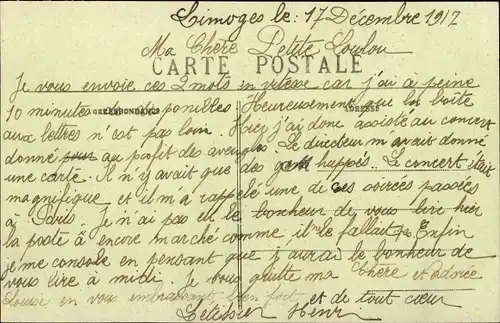 Limoges le: 17 Décembre 1917
Ma Chère Petite Loulou
CARTE POSTALE
Je vous envoie ces 2 mots en vitesse car j'ai à peine
10 minutes de disponibles. Heureusement que la boîte
CORRESPONDANCE ADRESSE
aux lettres n'est pas loin. Hier j'ai donc assisté au concert
donné pour au profit des aveugles. Le directeur m'avait donné
une carte. Il n'y avait que des gens huppés. Le concert était
magnifique et il m'a rappelé une de ces soirées passées
à Paris. Je n'ai pas eu le bonheur de vous lire hier
la poste a encore marché comme il le fallait. Enfin
je me console en pensant que j'aurai le bonheur de
vous lire à midi. Je vous quitte ma Chère et adorée
Louise en vous embrassant bien fort
et de tout cœur
Henri